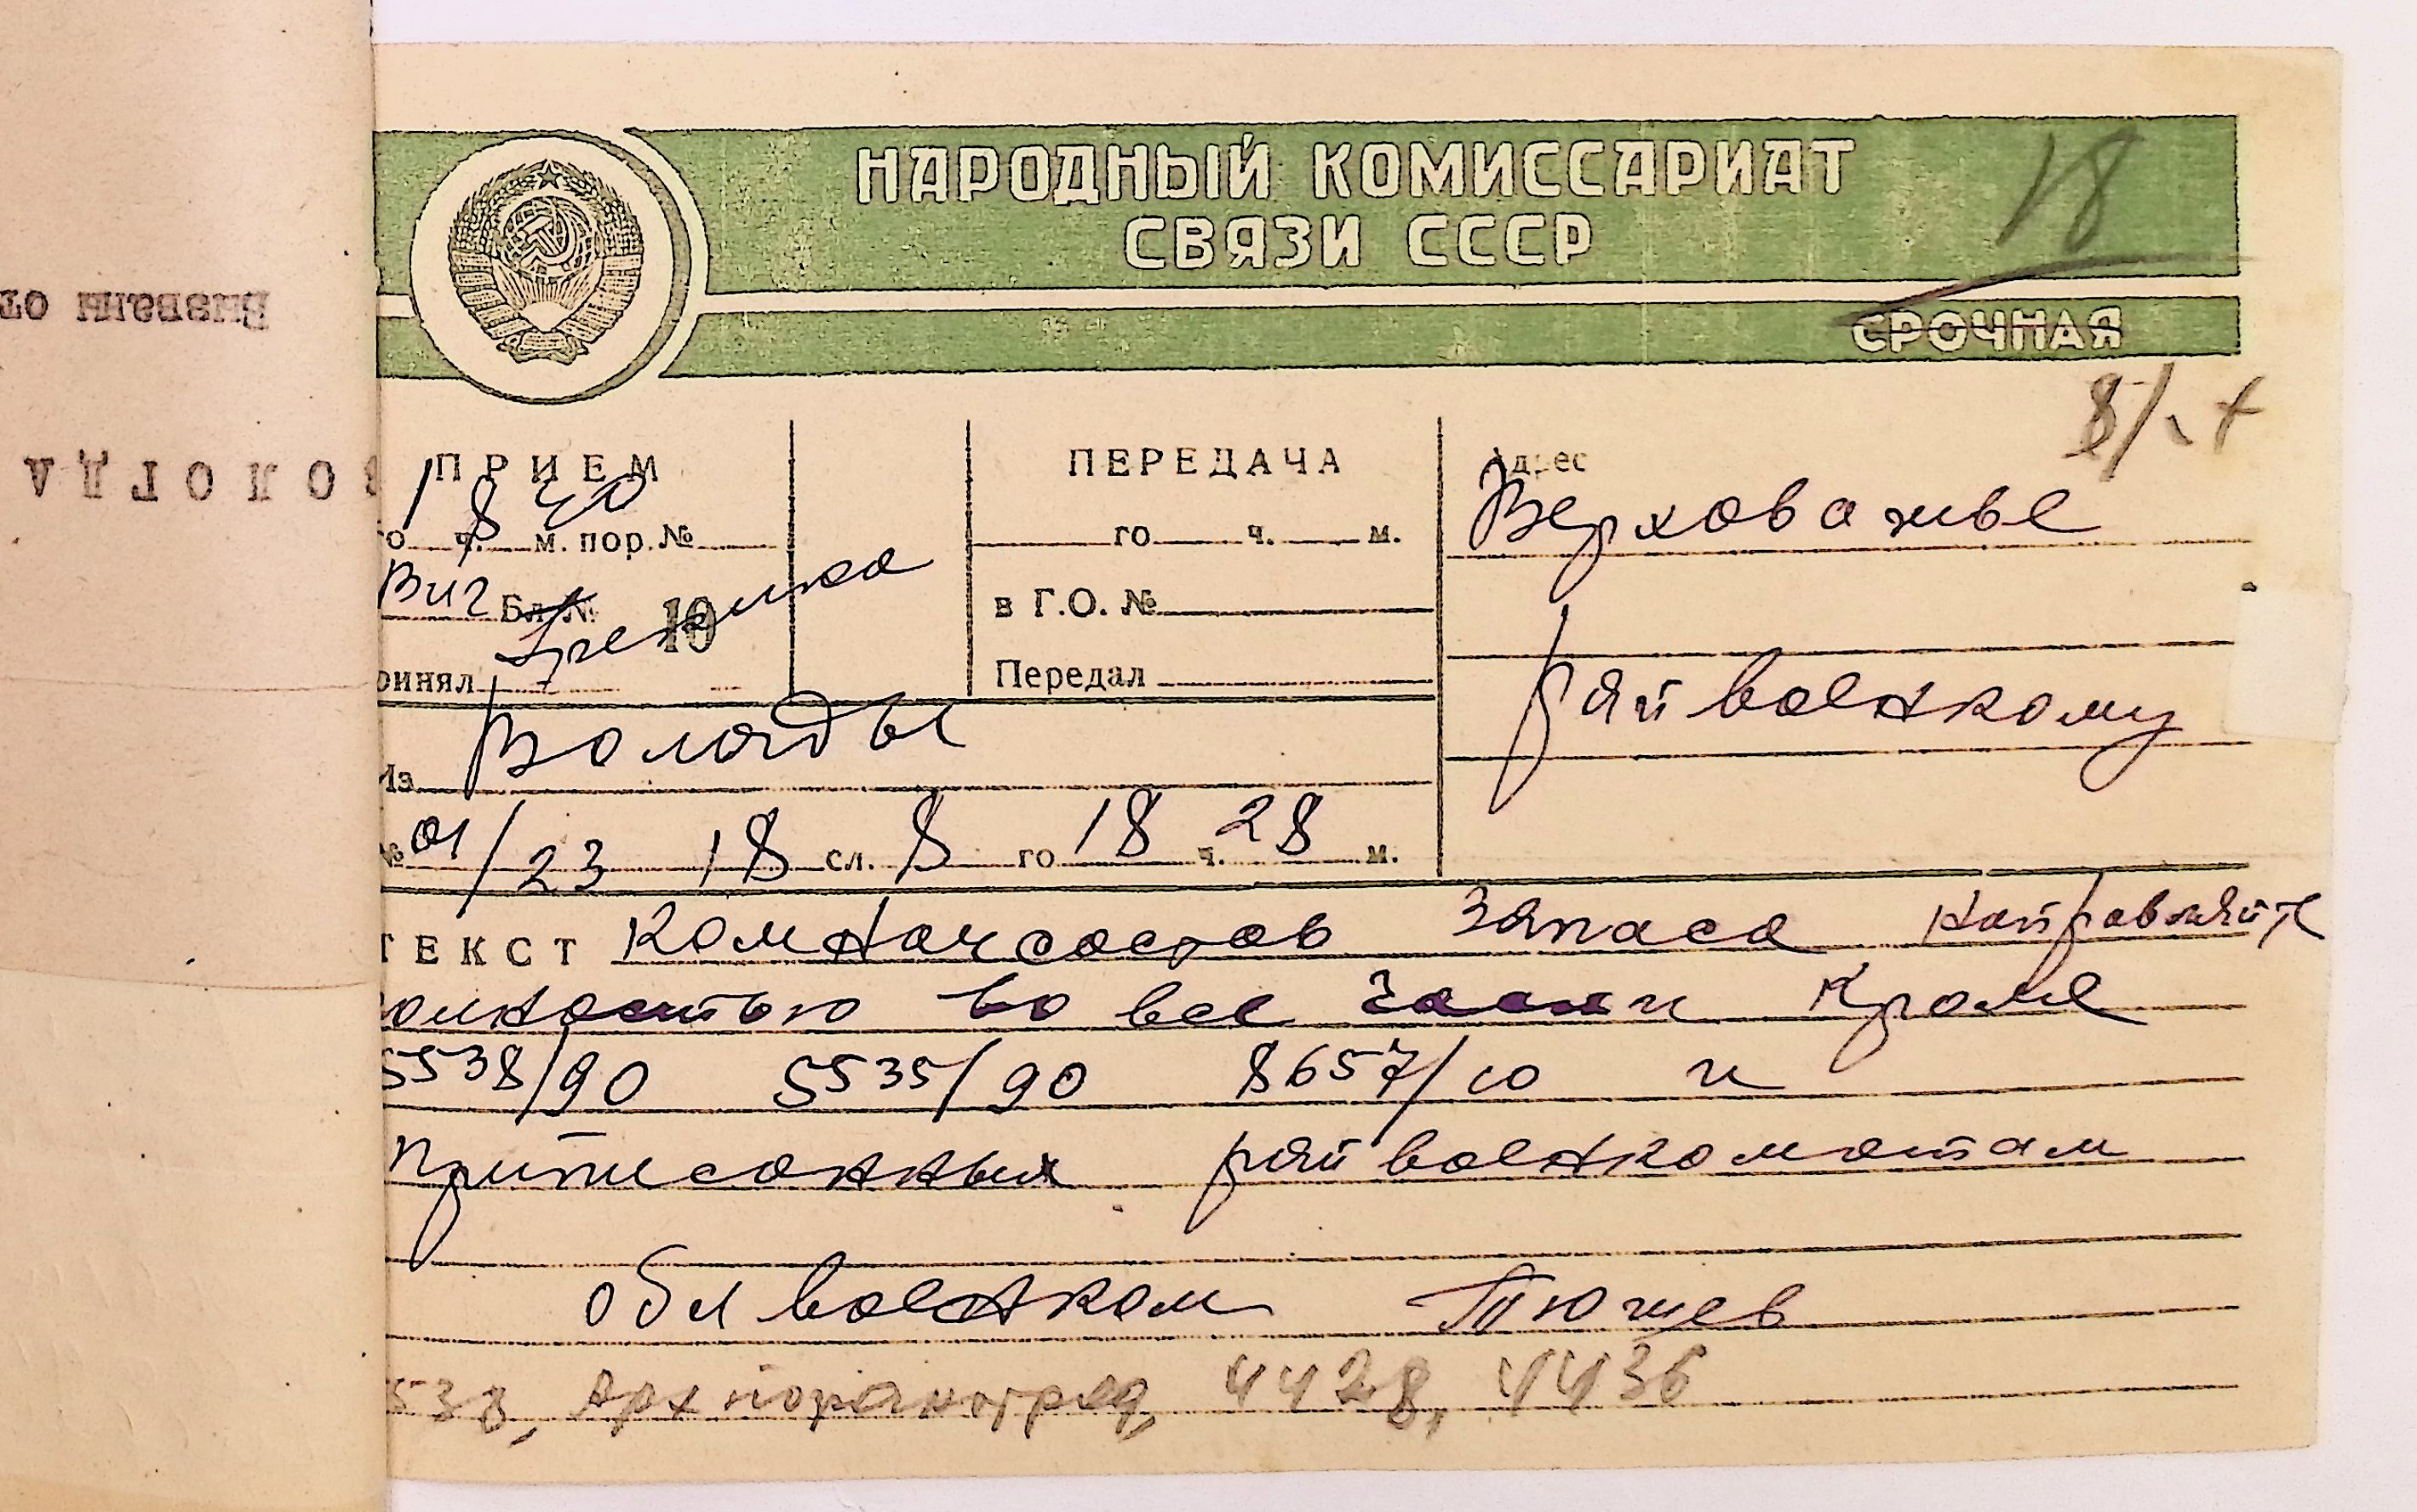 НАРОДНЫЙ КОМИССАРИАТ
СВЯЗИ СССР
18
СРОЧНАЯ
ВОЛОГДА
ПРИЕМ
ПЕРЕДАЧА
Адрес
1 8 40
го ч. м. пор. №
го ч. м.
Верховажье
Бл. № 10
в Г.О. №
принял
Передал
райвоенкому
Из Вологды
№ 01/23 18 сл. 8 го 18 ч. 28 м.
ТЕКСТ Комначсостав запаса направляйте
полностью во все части кроме
5538/90 5535/90 8657/10 и
приписанных райвоенкоматам
облвоенком Тюшев
538, 4428, 4436